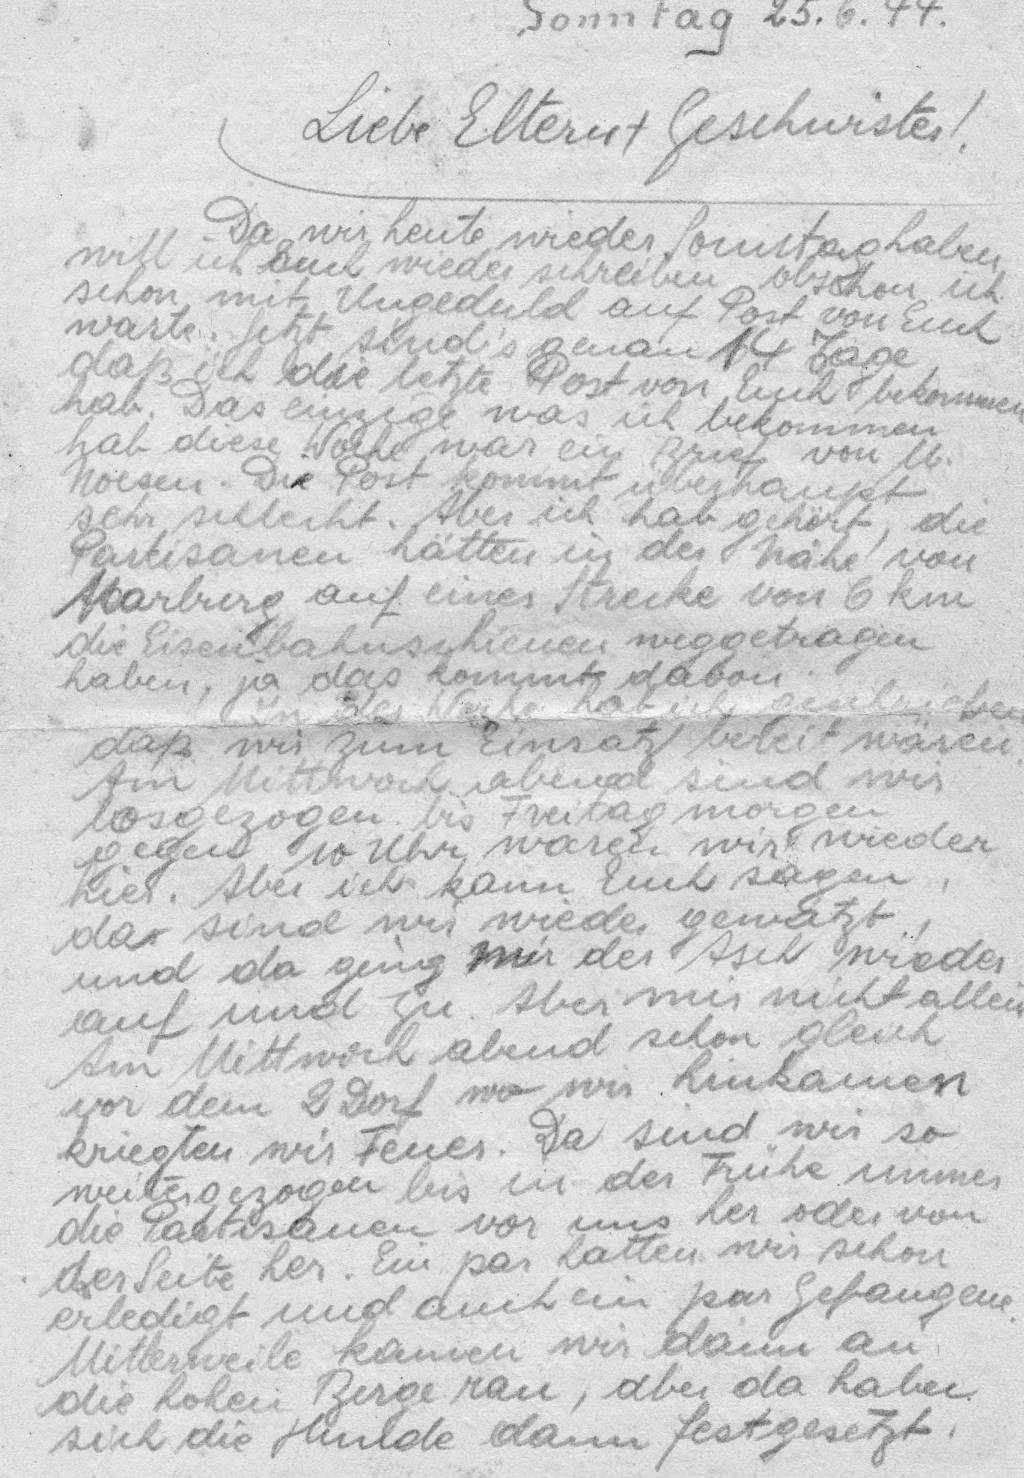 Sonntag 25.6.44.
Liebe Eltern + Geschwister!
Da wir heute wieder Sonntag haben
will ich Euch wieder schreiben obschon ich
schon mit Ungeduld auf Post von Euch
warte. Jetzt sind's genau 14 Tage
daß ich die letzte Post von Euch bekommen
hab. Das einzige was ich bekommen
hab diese Woche war ein Brief von M.
Noesen. Die Post kommt überhaupt
sehr schlecht. Aber ich hab gehört, die
Partisanen hätten in der Nähe von
Marburg auf einer Strecke von 6 km
die Eisenbahnschienen weggetragen
haben, ja das kommt davon.
In der Woche hab ich geschrieben
daß wir zum Einsatz bereit wären.
Am Mittwoch abend sind wir
losgezogen bis Freitag morgen
gegen 10 Uhr waren wir wieder
hier. Aber ich kann Euch sagen,
da sind wir wieder gewätzt,
und da ging mir der Asch wieder
auf und zu. Aber mir nicht allein
Am Mittwoch abend schon gleich
vor dem 2 Dorf wo wir hinkamen
kriegten wir Feuer. Da sind wir so
weitergezogen bis in der Frühe immer
die Partisanen vor uns her oder von
der Seite her. Ein par hatten wir schon
erledigt und auch ein par Gefangene.
Mitlerweile kamen wir dann an
die hohen Berge ran, aber da haben
sich die Hunde dann festgesetzt.